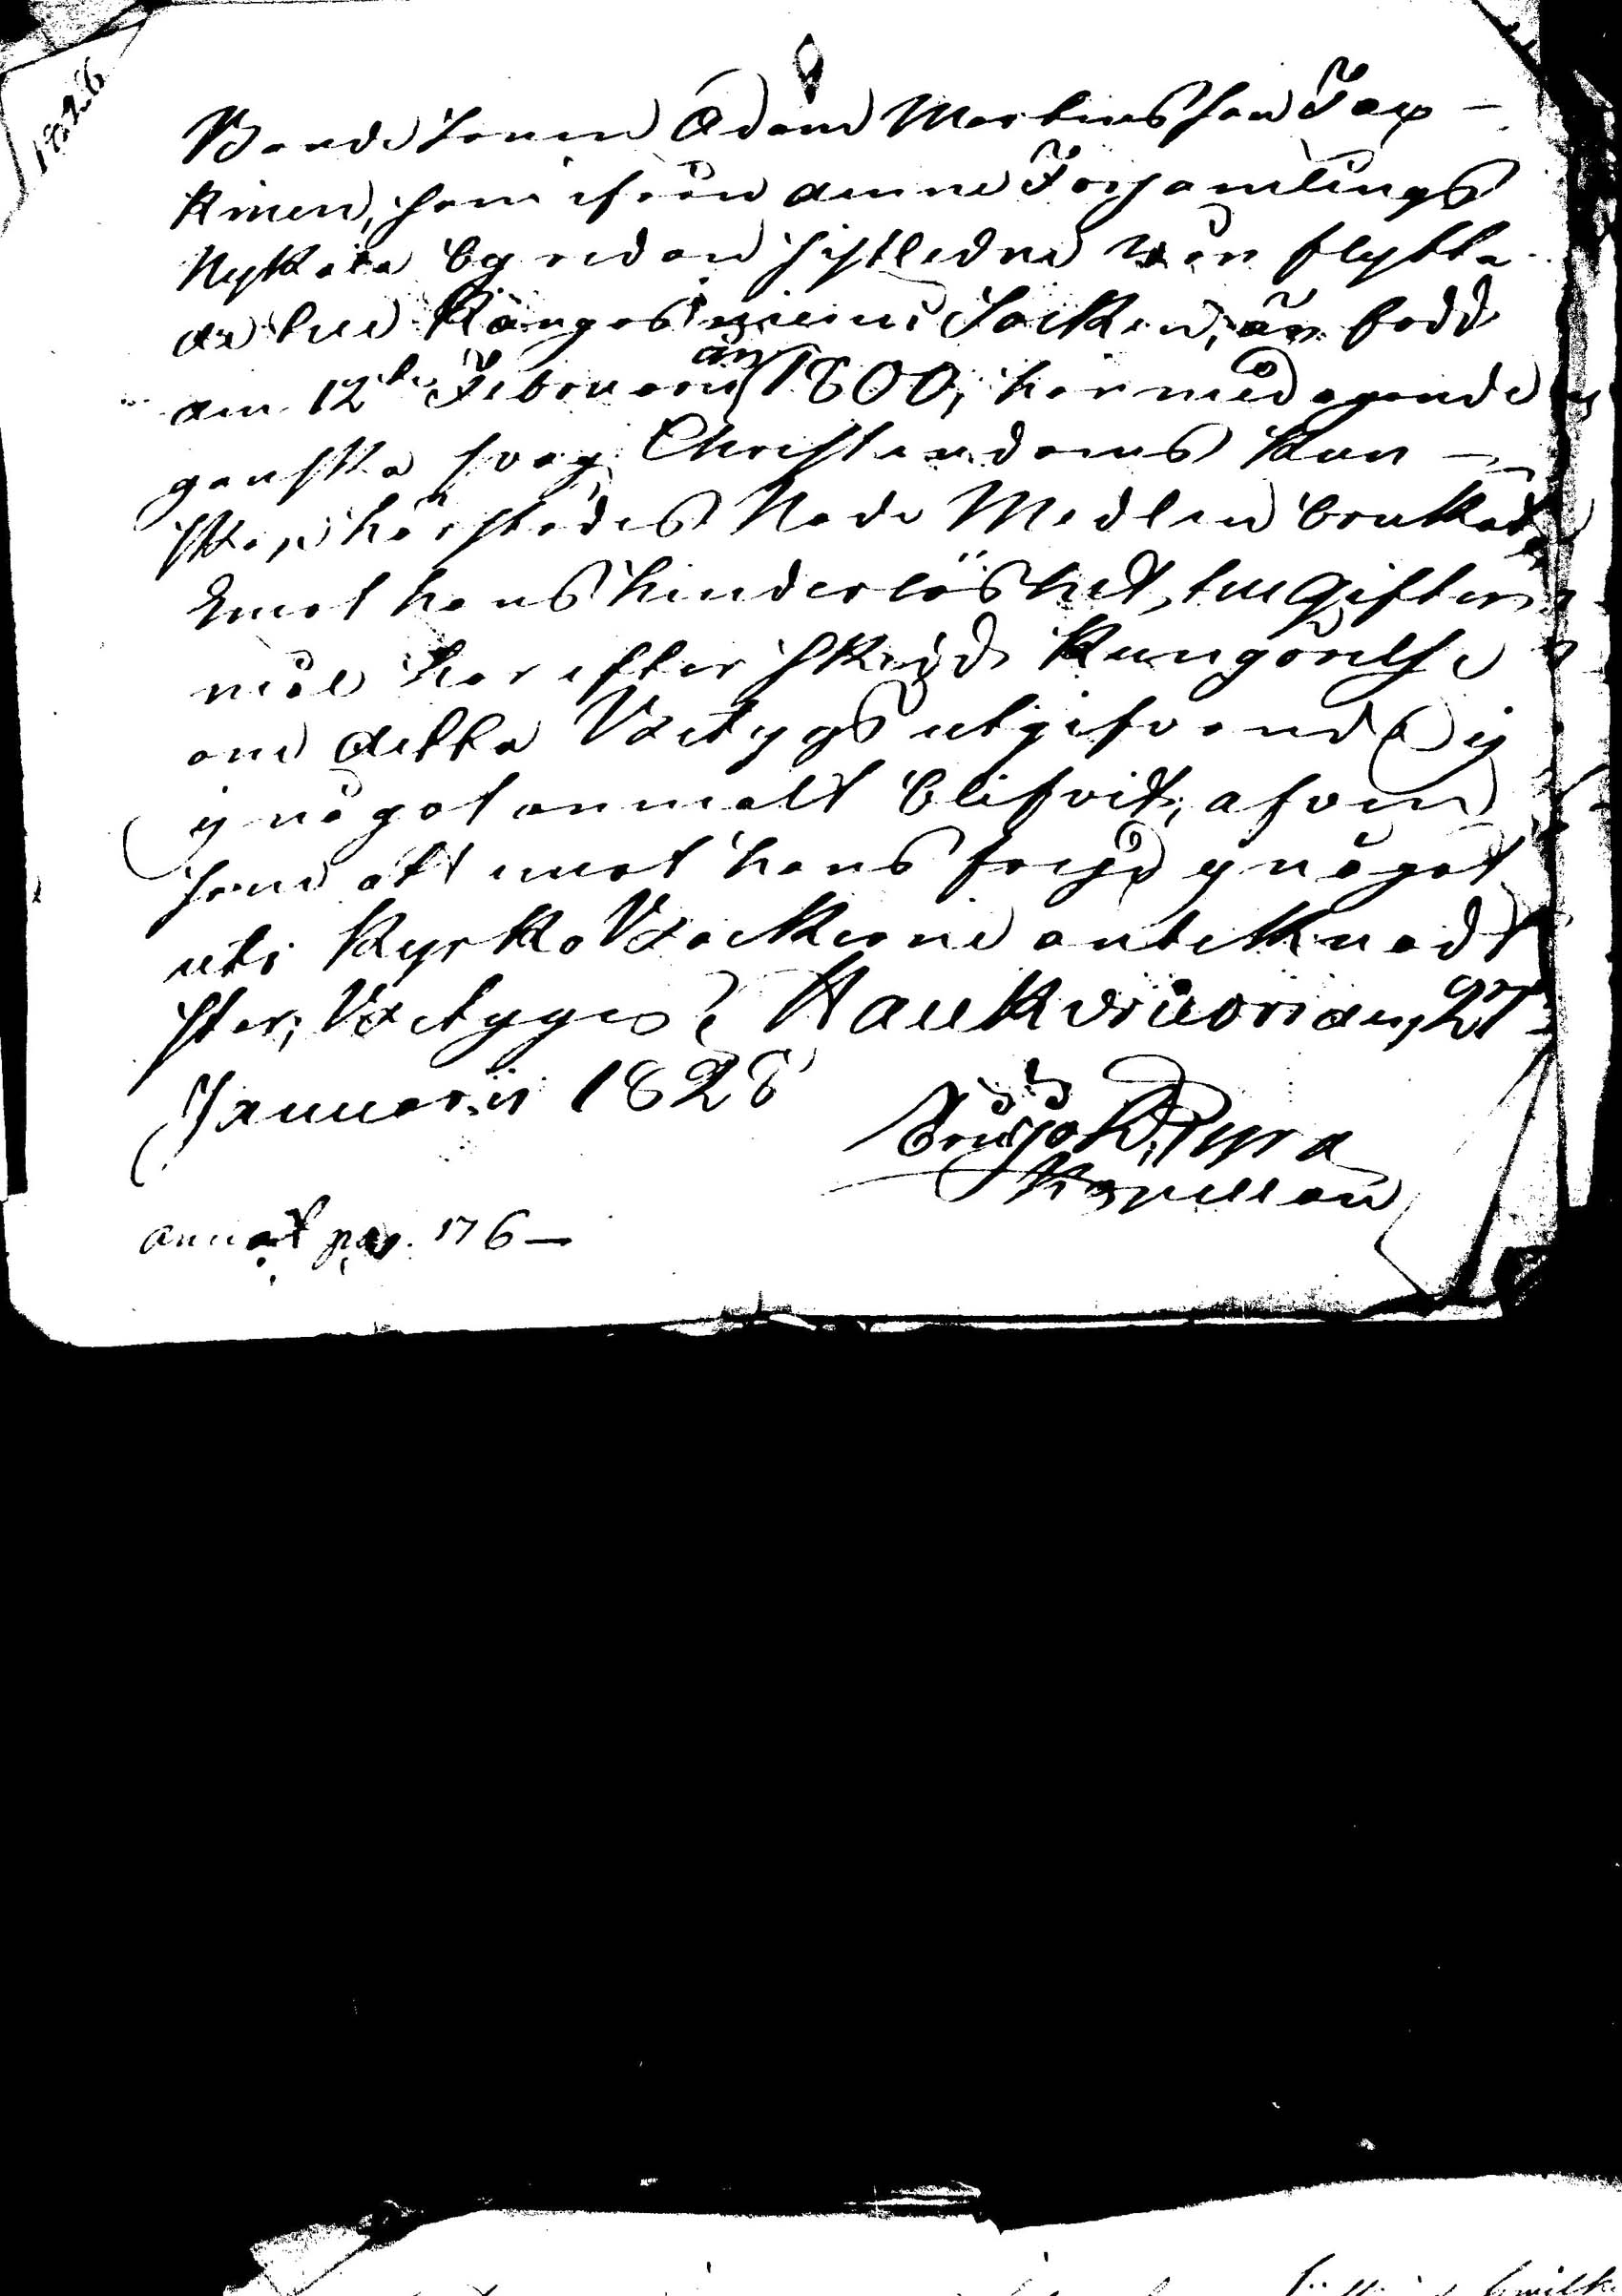 1828
Bonde Sonen Adam Mortensson Tax-
kinen, som ifrån denne Församlings
Nykala by redan sistledne vår flytta
de till Kangasniemi Socken, är född
den 12te Februarii år 1800, har med ägande
ganska svag Christendoms Kun-
skap härstädes Nade Medlen brukat,
Emot hans hinderlöshet till gifter-
mål har efter skedd Kungörelse
om detta Betygs utgifvand ej
ej något anmält blifvit, äfven
som att mot hans frejd ej något
uti Kyrko Böckerne anteknadt
står; Betygas, Haukivuori den 27
Januarii 1828
Kapellan
annot pag. 176 –